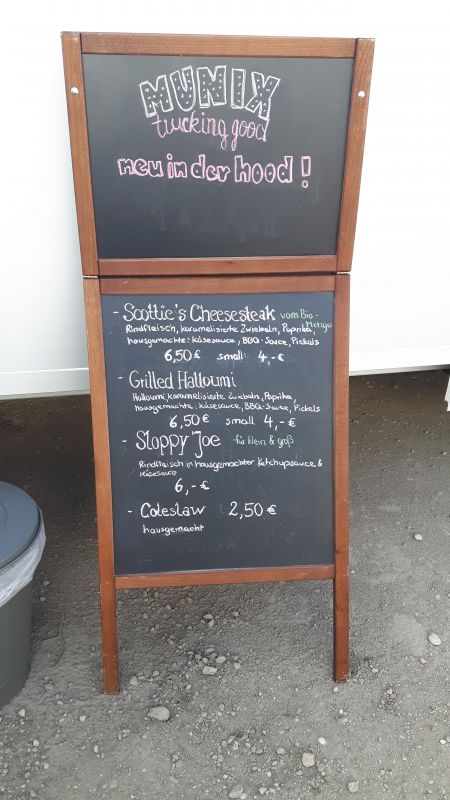 MUNIX
trucking good
neu in der hood!
- Scottie's Cheesesteak vom Bio-
Metzger
Rindfleisch, karamelisierte Zwiebeln, Paprika,
hausgemachte: Käsesauce, BBQ-Sauce, Pickels
6,50€ small: 4,-€
- Grilled Halloumi
Halloumi, karamelisierte Zwiebeln, Paprika,
hausgemachte: Käsesauce, BBQ-Sauce, Pickels
6,50€ small 4,-€
- Sloppy Joe für klein & groß
Rindfleisch in hausgemachter Ketchupsauce &
Käsesauce
6,-€
- Coleslaw 2,50€
hausgemacht